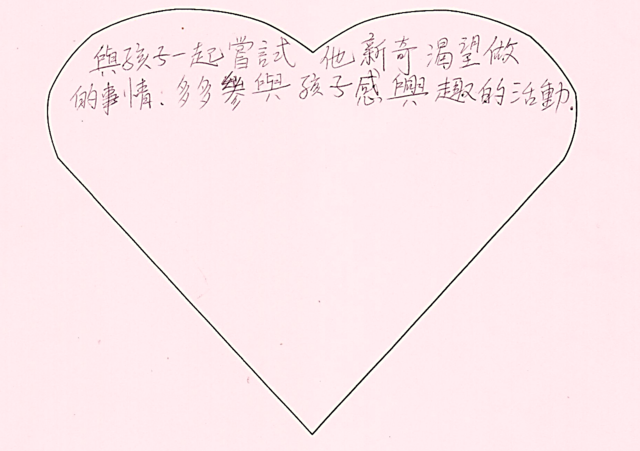 與孩子一起嘗試 他新奇渴望做
的事情:多多參與孩子感興趣的活動.